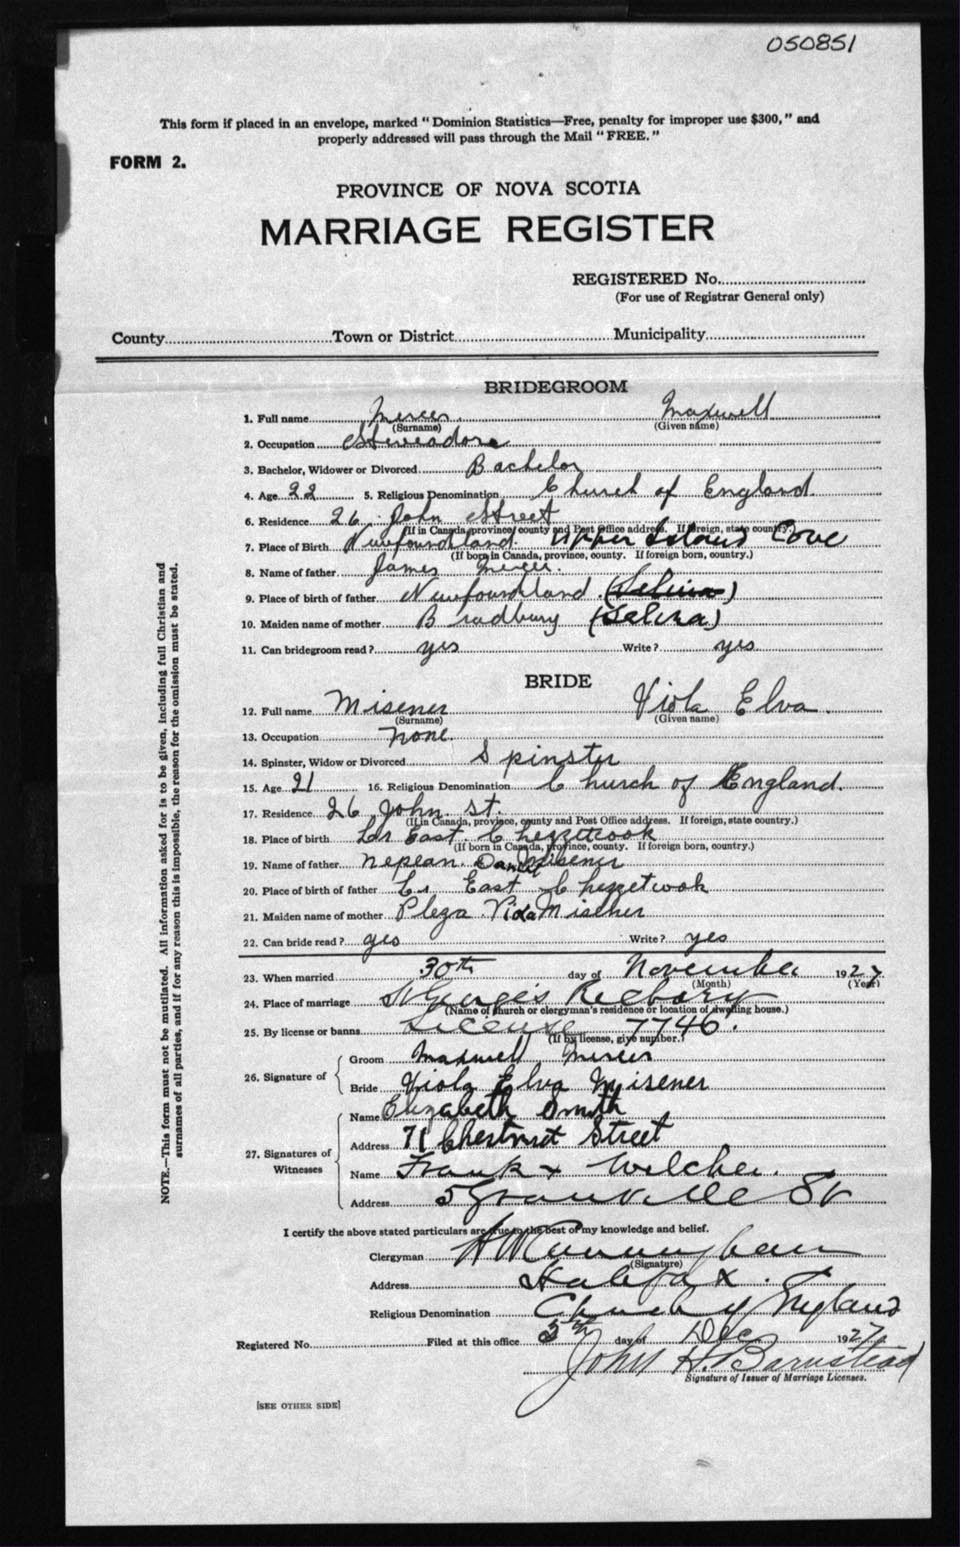 050851
This form if placed in an envelope, marked "Dominion Statistics—Free, penalty for improper use $300," and
properly addressed will pass through the Mail "FREE."
FORM 2.
PROVINCE OF NOVA SCOTIA
MARRIAGE REGISTER
REGISTERED No.
(For use of Registrar General only)
County Town or District Municipality
BRIDEGROOM
1. Full name Mercer Maxwell
(Surname) (Given name)
2. Occupation Steveadore
3. Bachelor, Widower or Divorced Bachelor
4. Age 22 5. Religious Denomination Church of England
6. Residence 26 John Street
(If in Canada, province, county and Post Office address. If foreign, state country.)
7. Place of Birth Newfoundland Upper Island Cove
(If born in Canada, province, county. If foreign born, country.)
8. Name of father James Mercer.
9. Place of birth of father Newfoundland (Selina)
10. Maiden name of mother Bradbury (Selina)
11. Can bridegroom read? yes Write? yes
BRIDE
12. Full name Misener Viola Elva.
(Surname) (Given name)
13. Occupation none.
14. Spinster, Widow or Divorced Spinster
15. Age 21 16. Religious Denomination Church of England.
17. Residence 26 John St.
(If in Canada, province, county and Post Office address. If foreign, state country.)
18. Place of birth East Chezzetcook
(If born in Canada, province, county. If foreign born, country.)
19. Name of father Nepean Daniel Misener
20. Place of birth of father East Chezzetcook
21. Maiden name of mother Vida Misener
22. Can bride read? yes Write? yes
23. When married 30th day of November 1927
(Month) (Year)
24. Place of marriage St George's Rectory
(Name of church or clergyman's residence or location of dwelling house.)
25. By license or banns License 7746.
(If by license, give number.)
26. Signature of
Groom Maxwell Mercer
Bride Viola Elva Misener
27. Signatures of Witnesses
Name Elizabeth Smith
Address 71 Chestnut Street
Name Frank Welcher.
Address 5 Granville St
I certify the above stated particulars are true to the best of my knowledge and belief.
Clergyman H W Cunningham
(Signature)
Address Halifax.
Religious Denomination Church of England
Registered No. Filed at this office 5th day of Dec 1927
John H. Barnstead
Signature of Issuer of Marriage Licenses.
[SEE OTHER SIDE]
NOTE.—This form must not be mutilated. All information asked for is to be given, including full Christian and
surnames of all parties, and if for any reason this is impossible, the reason for the omission must be stated.